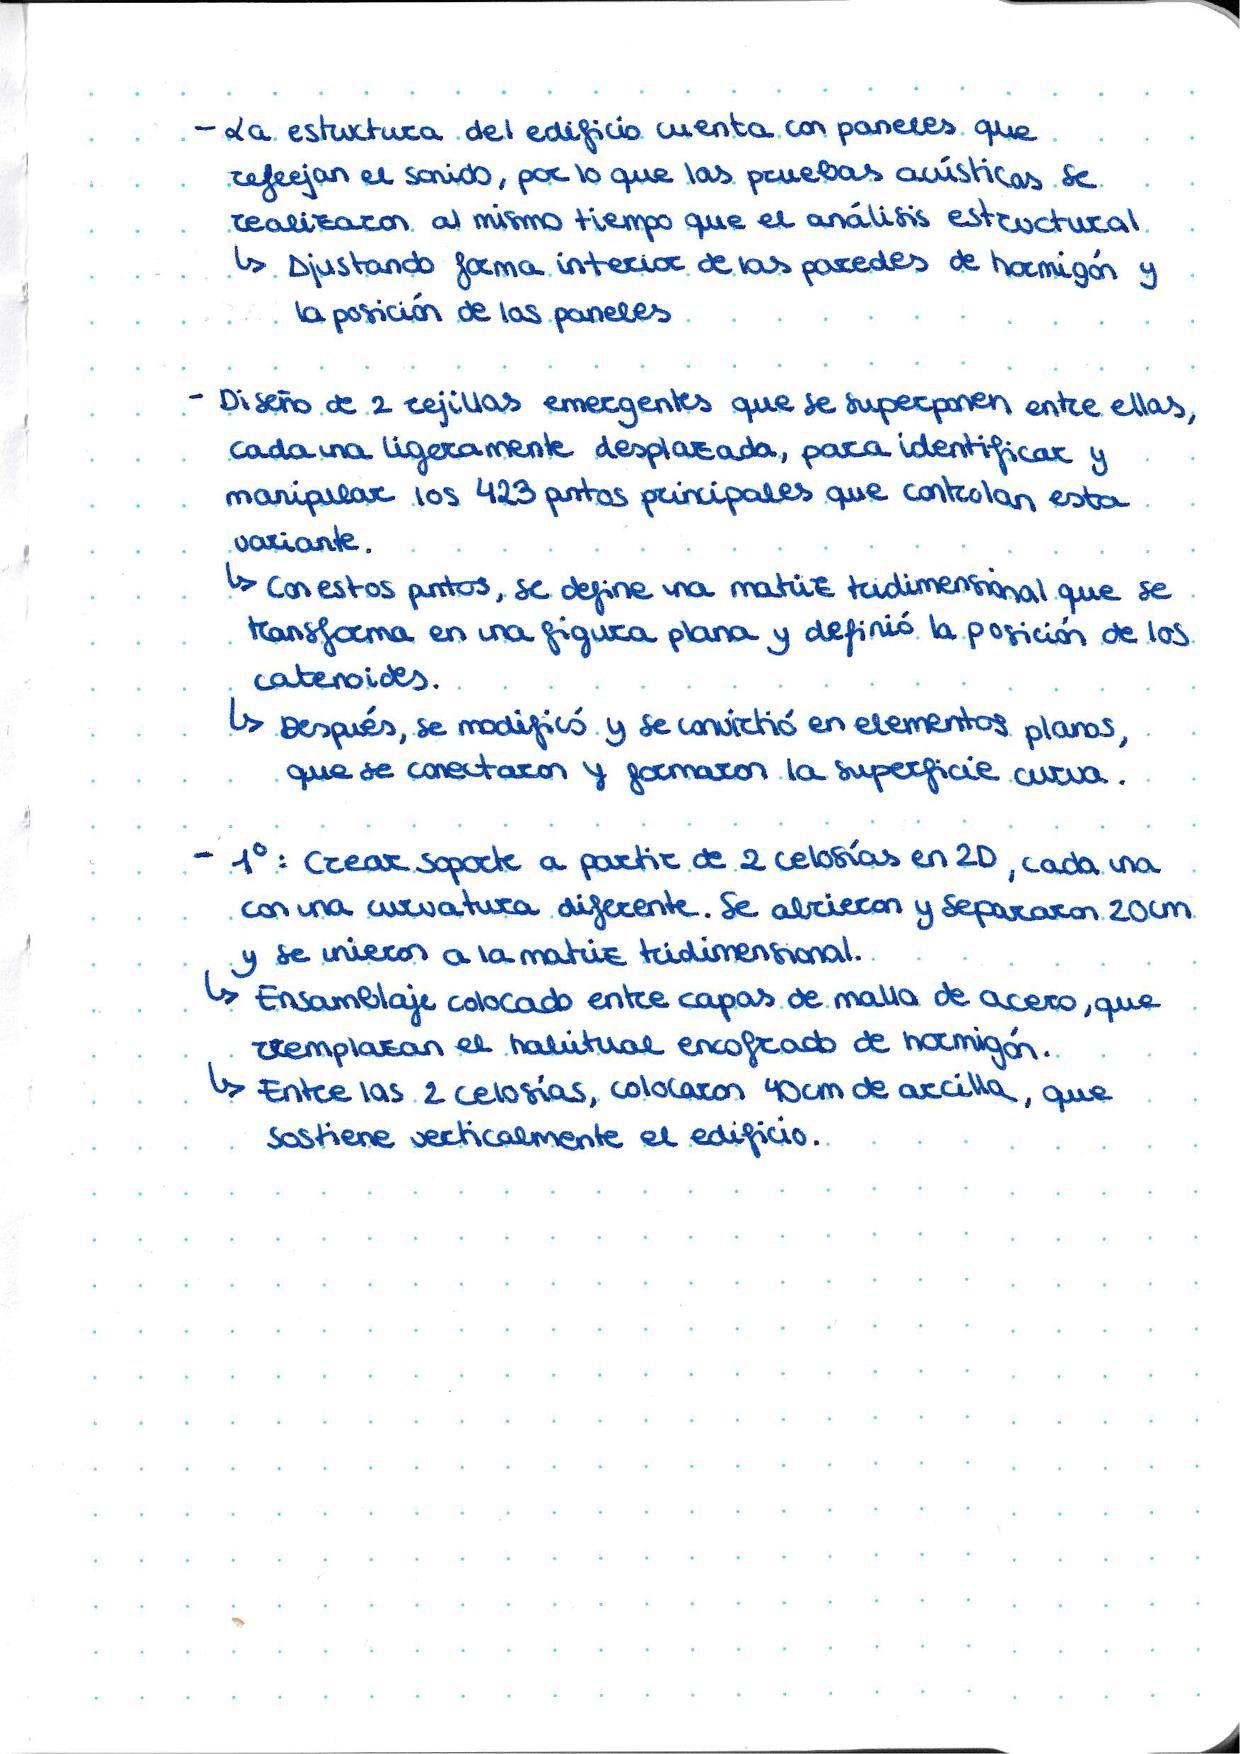 - La estructura del edificio cuenta con paneles que
reflejan el sonido, por lo que las pruebas acústicas se
realizaron al mismo tiempo que el análisis estructural
↳ Ajustando forma interior de las paredes de hormigón y
la posición de los paneles
- Diseño de 2 rejillas emergentes que se superponen entre ellas,
cada una ligeramente desplazada, para identificar y
manipular los 423 puntos principales que controlan esta
variante.
↳ Con estos puntos, se define una matriz tridimensional que se
transforma en una figura plana y definió la posición de los
catenoides.
↳ Después, se modificó y se convirtió en elementos planos,
que se conectaron y formaron la superficie curva.
- 1º: Crear soporte a partir de 2 celosías en 2D, cada una
con una curvatura diferente. Se abrieron y separaron 20cm
y se unieron a la matriz tridimensional.
↳ Ensamblaje colocado entre capas de malla de acero, que
reemplazan el habitual encofrado de hormigón.
↳ Entre las 2 celosías, colocaron 40cm de arcilla, que
sostiene verticalmente el edificio.